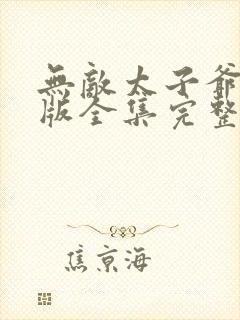 無敵太子爺
版全集完整
焦京海